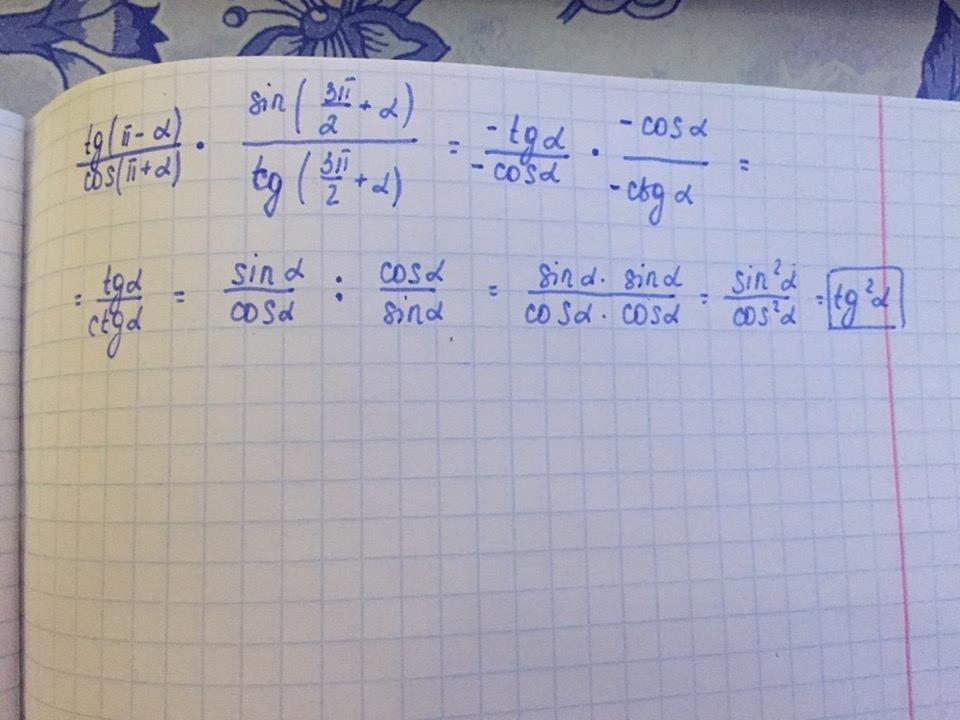 tg(π-α)/cos(π+α) · sin(3π/2 + α)/tg(3π/2 + α) = -tgα/-cosα · -cosα/-ctgα =
= tgα/ctgα = sinα/cosα : cosα/sinα = sinα · sinα/cosα · cosα = sin²α/cos²α = tg²α